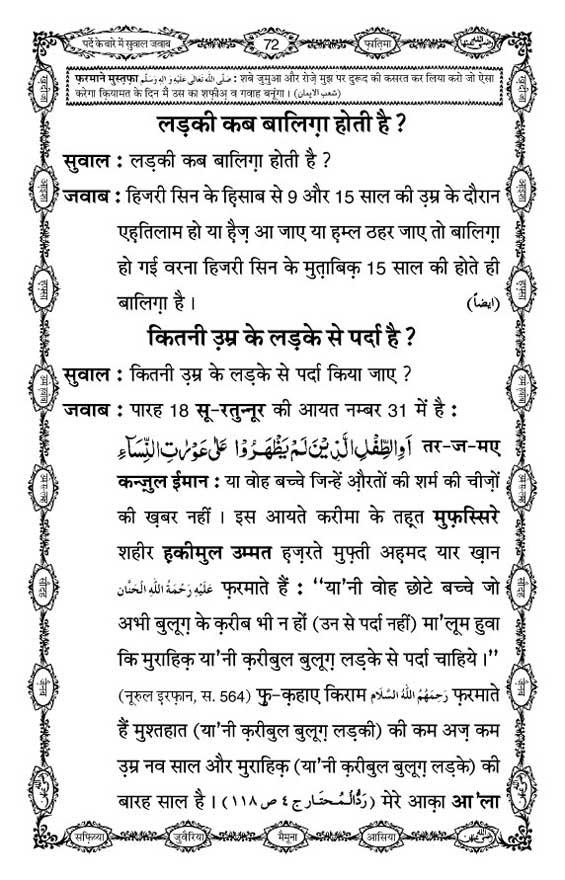 पर्दे के बारे में सुवाल जवाब
72
फ़ातिमा
फ़रमाने मुस्तफ़ा صَلَّی اللہُ تَعَالٰی عَلَیْہِ وَاٰلِہٖ وَسَلَّم : शबे जुमुआ और रोज़े मुझ पर दुरूद की कसरत कर लिया करो जो ऐसा
करेगा क़ियामत के दिन मैं उस का शफ़ीअ़ व गवाह बनूंगा। (شعب الایمان)
लड़की कब बालिग़ा होती है ?
सुवाल : लड़की कब बालिग़ा होती है ?
जवाब : हिजरी सिन के हिसाब से 9 और 15 साल की उ़म्र के दौरान
एह़तिलाम हो या ह़ैज़ आ जाए या ह़म्ल ठहर जाए तो बालिग़ा
हो गई वरना हिजरी सिन के मुत़ाबिक़ 15 साल की होते ही
बालिग़ा है। (ایضاً)
कितनी उ़म्र के लड़के से पर्दा है ?
सुवाल : कितनी उ़म्र के लड़के से पर्दा किया जाए ?
जवाब : पारह 18 सू-रतुन्नूर की आयत नम्बर 31 में है :
اَوِ الطِّفْلِ الَّذِیْنَ لَمْ یَظْهَرُوْا عَلٰی عَوْرٰتِ النِّسَآءِ तर-ज-मए
कन्ज़ुल ईमान : या वोह बच्चे जिन्हें औ़रतों की शर्म की चीज़ों
की ख़बर नहीं। इस आयते करीमा के तह़्त मुफ़स्सिरे
शहीर ह़कीमुल उम्मत ह़ज़रते मुफ़्ती अह़मद यार ख़ान
عَلَیْہِ رَحْمَۃُ اللہِ الْحَنَّان फ़रमाते हैं : “या'नी वोह छोटे बच्चे जो
अभी बुलूग़ के क़रीब भी न हों (उन से पर्दा नहीं) मा'लूम हुवा
कि मुराहिक़ या'नी क़रीबुल बुलूग़ लड़के से पर्दा चाहिये।”
(नूरुल इरफ़ान, स. 564) फु-क़हाए किराम رَحِمَہُمُ اللہُ السَّلَام फ़रमाते
हैं मुश्तहात (या'नी क़रीबुल बुलूग़ लड़की) की कम अज़ कम
उ़म्र नव साल और मुराहिक़ (या'नी क़रीबुल बुलूग़ लड़के) की
बारह साल है। (رَدُّالْمُحتَار ج ٤ ص ١١٨) मेरे आक़ा आ'ला
सफ़िय्या
जुवैरिया
मैमूना
आसिया